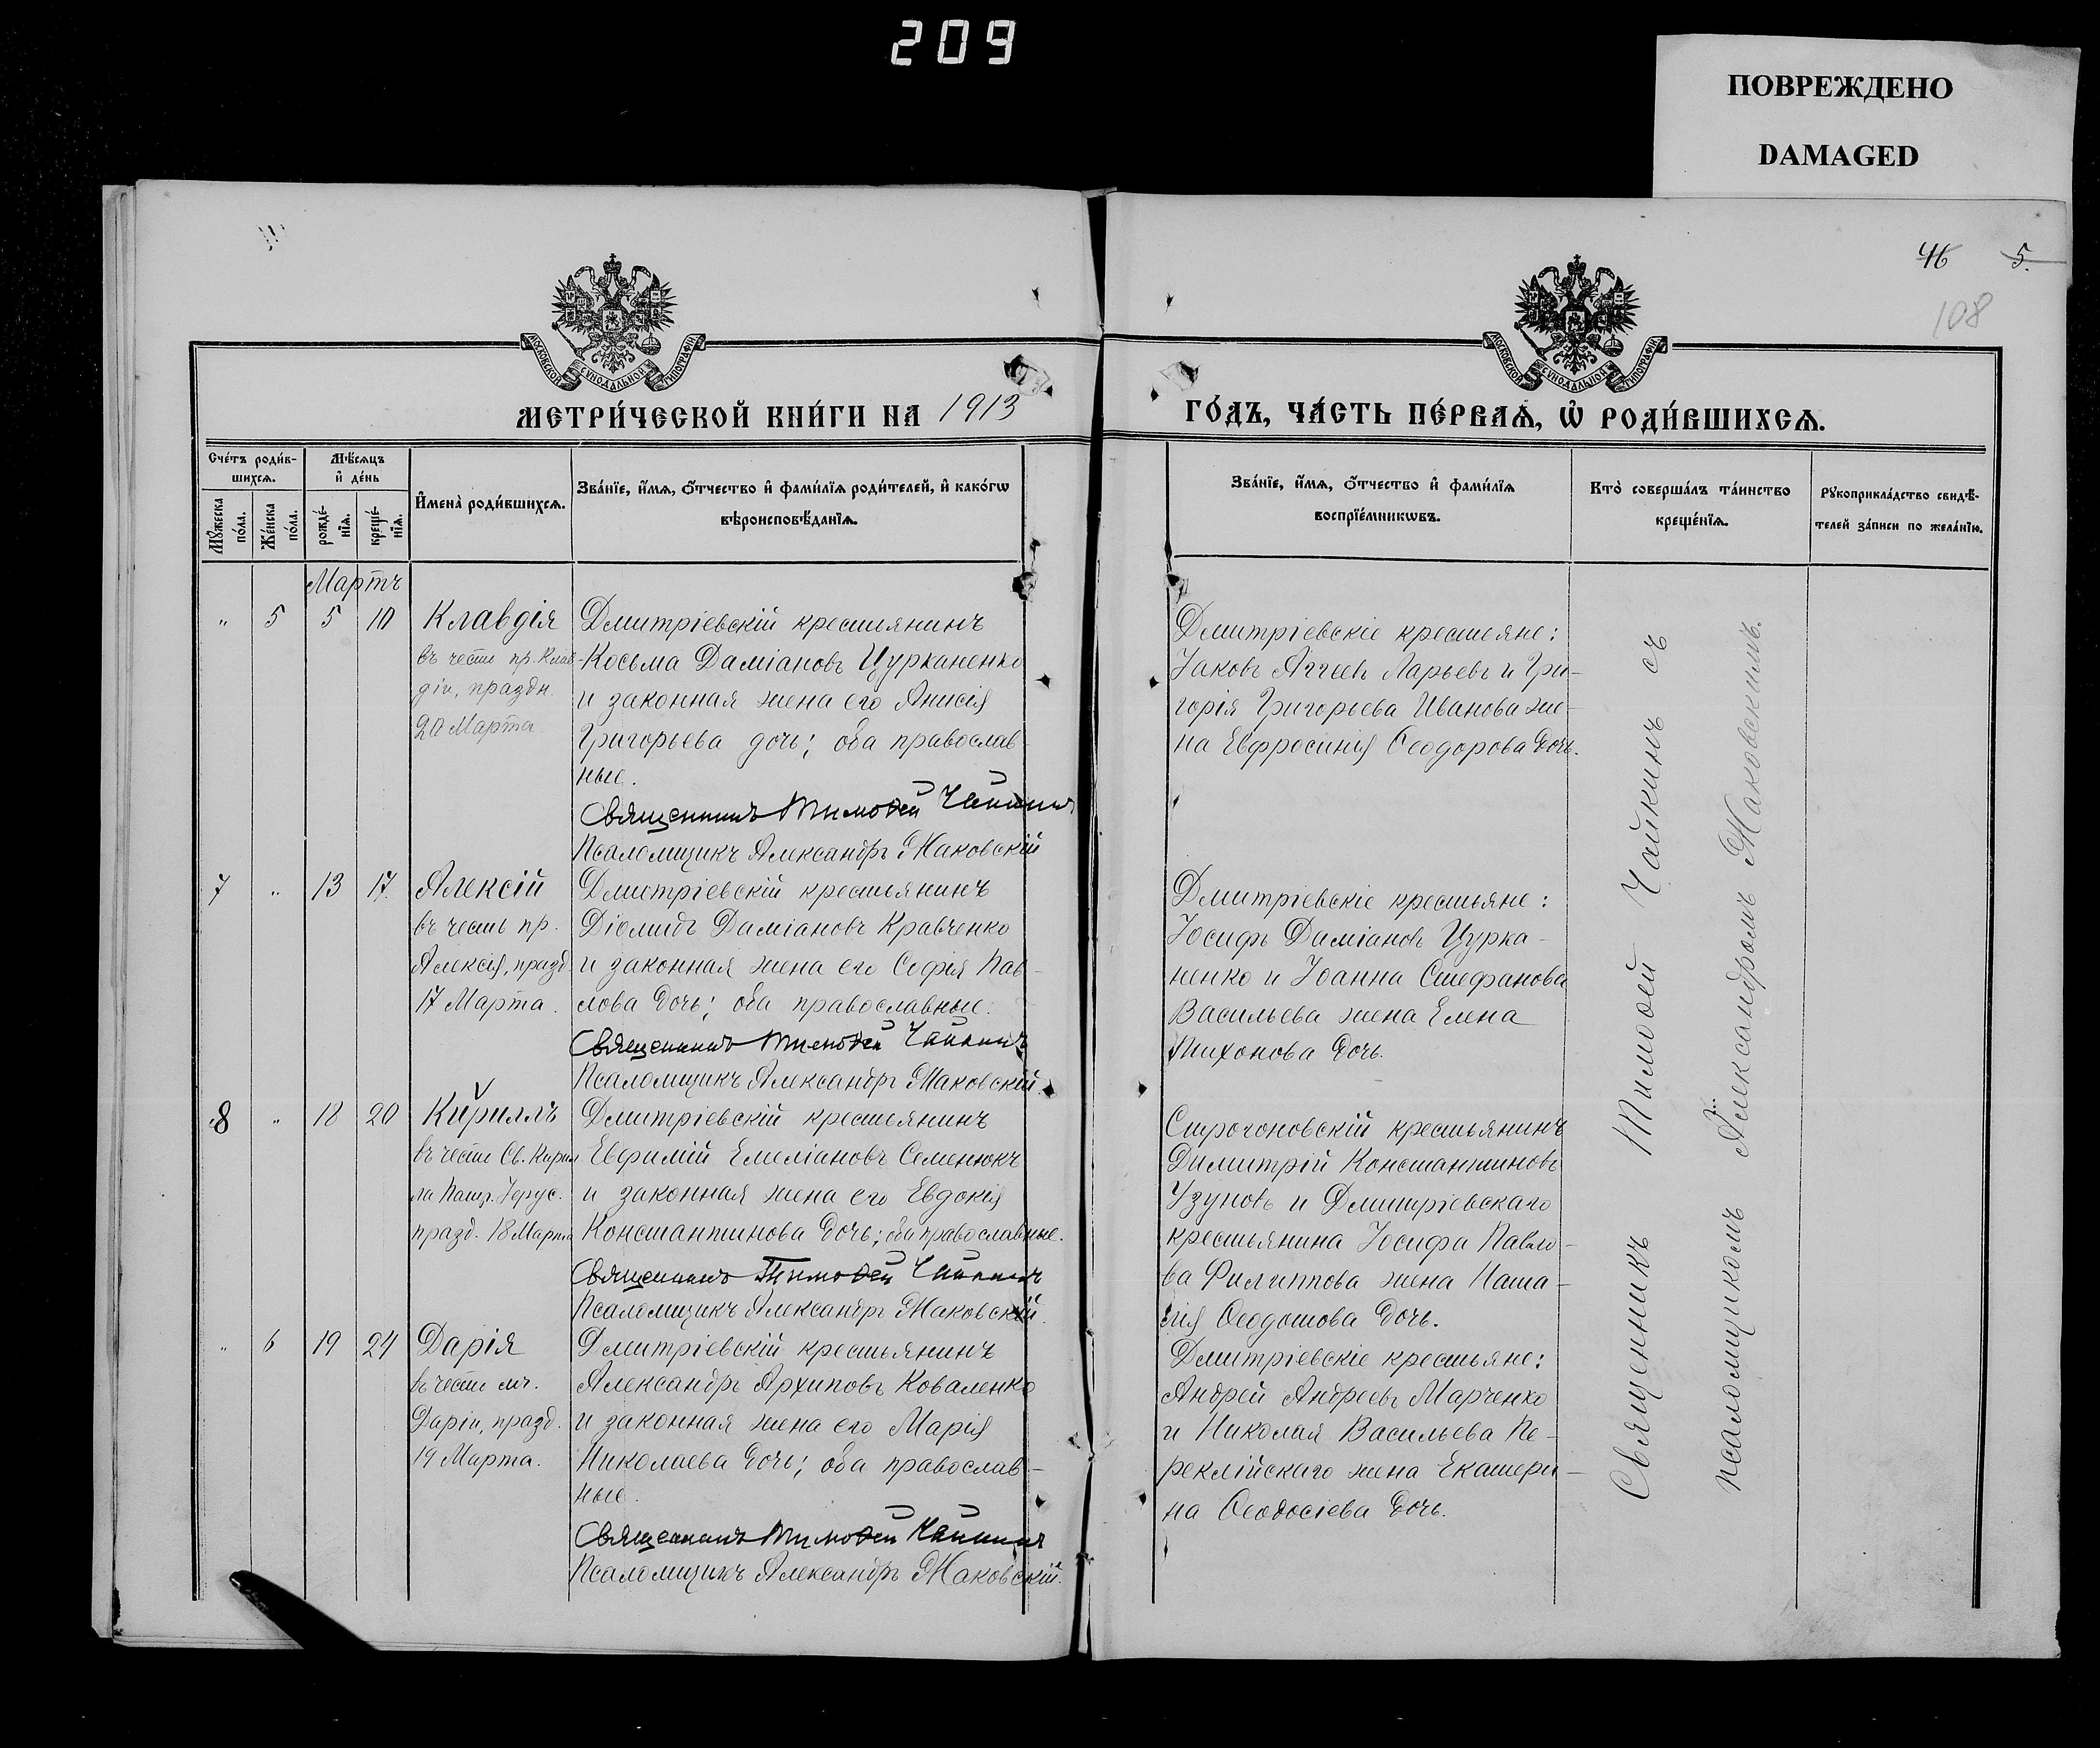 209
ПОВРЕЖДЕНО
DAMAGED
46 5.
108
МОСКОВСКОЙ СѴНОДАЛЬНОЙ ТИПОГРАФІИ
МОСКОВСКОЙ СѴНОДАЛЬНОЙ ТИПОГРАФІИ
МЕТРИ́ЧЕСКОЙ КНИ́ГИ НА 1913
ГО́ДЪ, ЧА́СТЬ ПЕ́РВАѦ, Ѡ҆ РОДИ́ВШИХСѦ.
Сче́тъ роди́в-
шихсѧ.
Мꙋ́жеска
по́ла.
Же́нска
по́ла.
Мѣ́сѧцъ
и҆ де́нь
рожде́-
нїѧ.
креще́-
нїѧ.
И҆мена̀ роди́вшихсѧ.
Зва́нїе, и҆́мѧ, ѻ҆́тчество и҆ фами́лїѧ роди́телей, и҆ како́гѡ
вѣроисповѣ́данїѧ.
Зва́нїе, и҆́мѧ, ѻ҆́тчество и҆ фами́лїѧ
воспрїе́мникѡвъ.
Кто̀ соверша́лъ та́инство
креще́нїѧ.
Рꙋкоприкла́дство свидѣ́-
телей за́писи по жела́нїю.
Мартъ
" 5 5 10
Клавдія
въ честь пр. Клав-
діи, праздн.
20 Марта
Дмитріевскій крестьянинъ
Косьма Даміановъ Цурканенко
и законная жена его Анисія
Григорьева дочь; оба православ-
ные.
Священникъ Тимоѳей Чайкинъ
Псаломщикъ Александръ Маковскій
Дмитріевскіе крестьяне:
Іаковъ Аггеевъ Ларьевъ и Гри-
горія Григорьева Иванова же-
на Евфросинія Ѳеодорова дочь.
7 " 13 17.
Алексій
въ честь пр.
Алексія, празд.
17 Марта.
Дмитріевскій крестьянинъ
Діомидъ Даміановъ Кравченко
и законная жена его Софія Пав-
лова дочь; оба православные.
Священникъ Тимоѳей Чайкинъ
Псаломщикъ Александръ Маковскій.
Дмитріевскіе крестьяне:
Іосифъ Даміановъ Цурка-
ненко и Іоанна Стефанова
Васильева жена Елена
Тихонова дочь.
8 " 18 20
Кириллъ
въ честь Св. Кирил
ла Патр. Іерус.
празд. 18 Марта
Дмитріевскій крестьянинъ
Евфимій Емеліановъ Семенюкъ
и законная жена его Евдокія
Константинова дочь; оба православные.
Священникъ Тимоѳей Чайкинъ
Псаломщикъ Александръ Маковскій.
Строгоновскій крестьянинъ
Димитрій Константиновъ
Узуновъ и Дмитріевскаго
крестьянина Іосифа Павло-
ва Филиппова жена Ната-
лія Ѳеодотова дочь.
" 6 19 24
Дарія
въ честь мч.
Даріи, празд.
19 Марта.
Дмитріевскій крестьянинъ
Александръ Архиповъ Коваленко
и законная жена его Марія
Николаева дочь; оба православ-
ные.
Священникъ Тимоѳей Чайкинъ
Псаломщикъ Александръ Маковскій.
Дмитріевскіе крестьяне:
Андрей Андреевъ Марченко
и Николая Васильева Пе-
реклійскаго жена Екатери-
на Ѳеодосіева дочь.
Священникъ Тимоѳей Чайкинъ съ
псаломщикомъ Александромъ Маковскимъ.